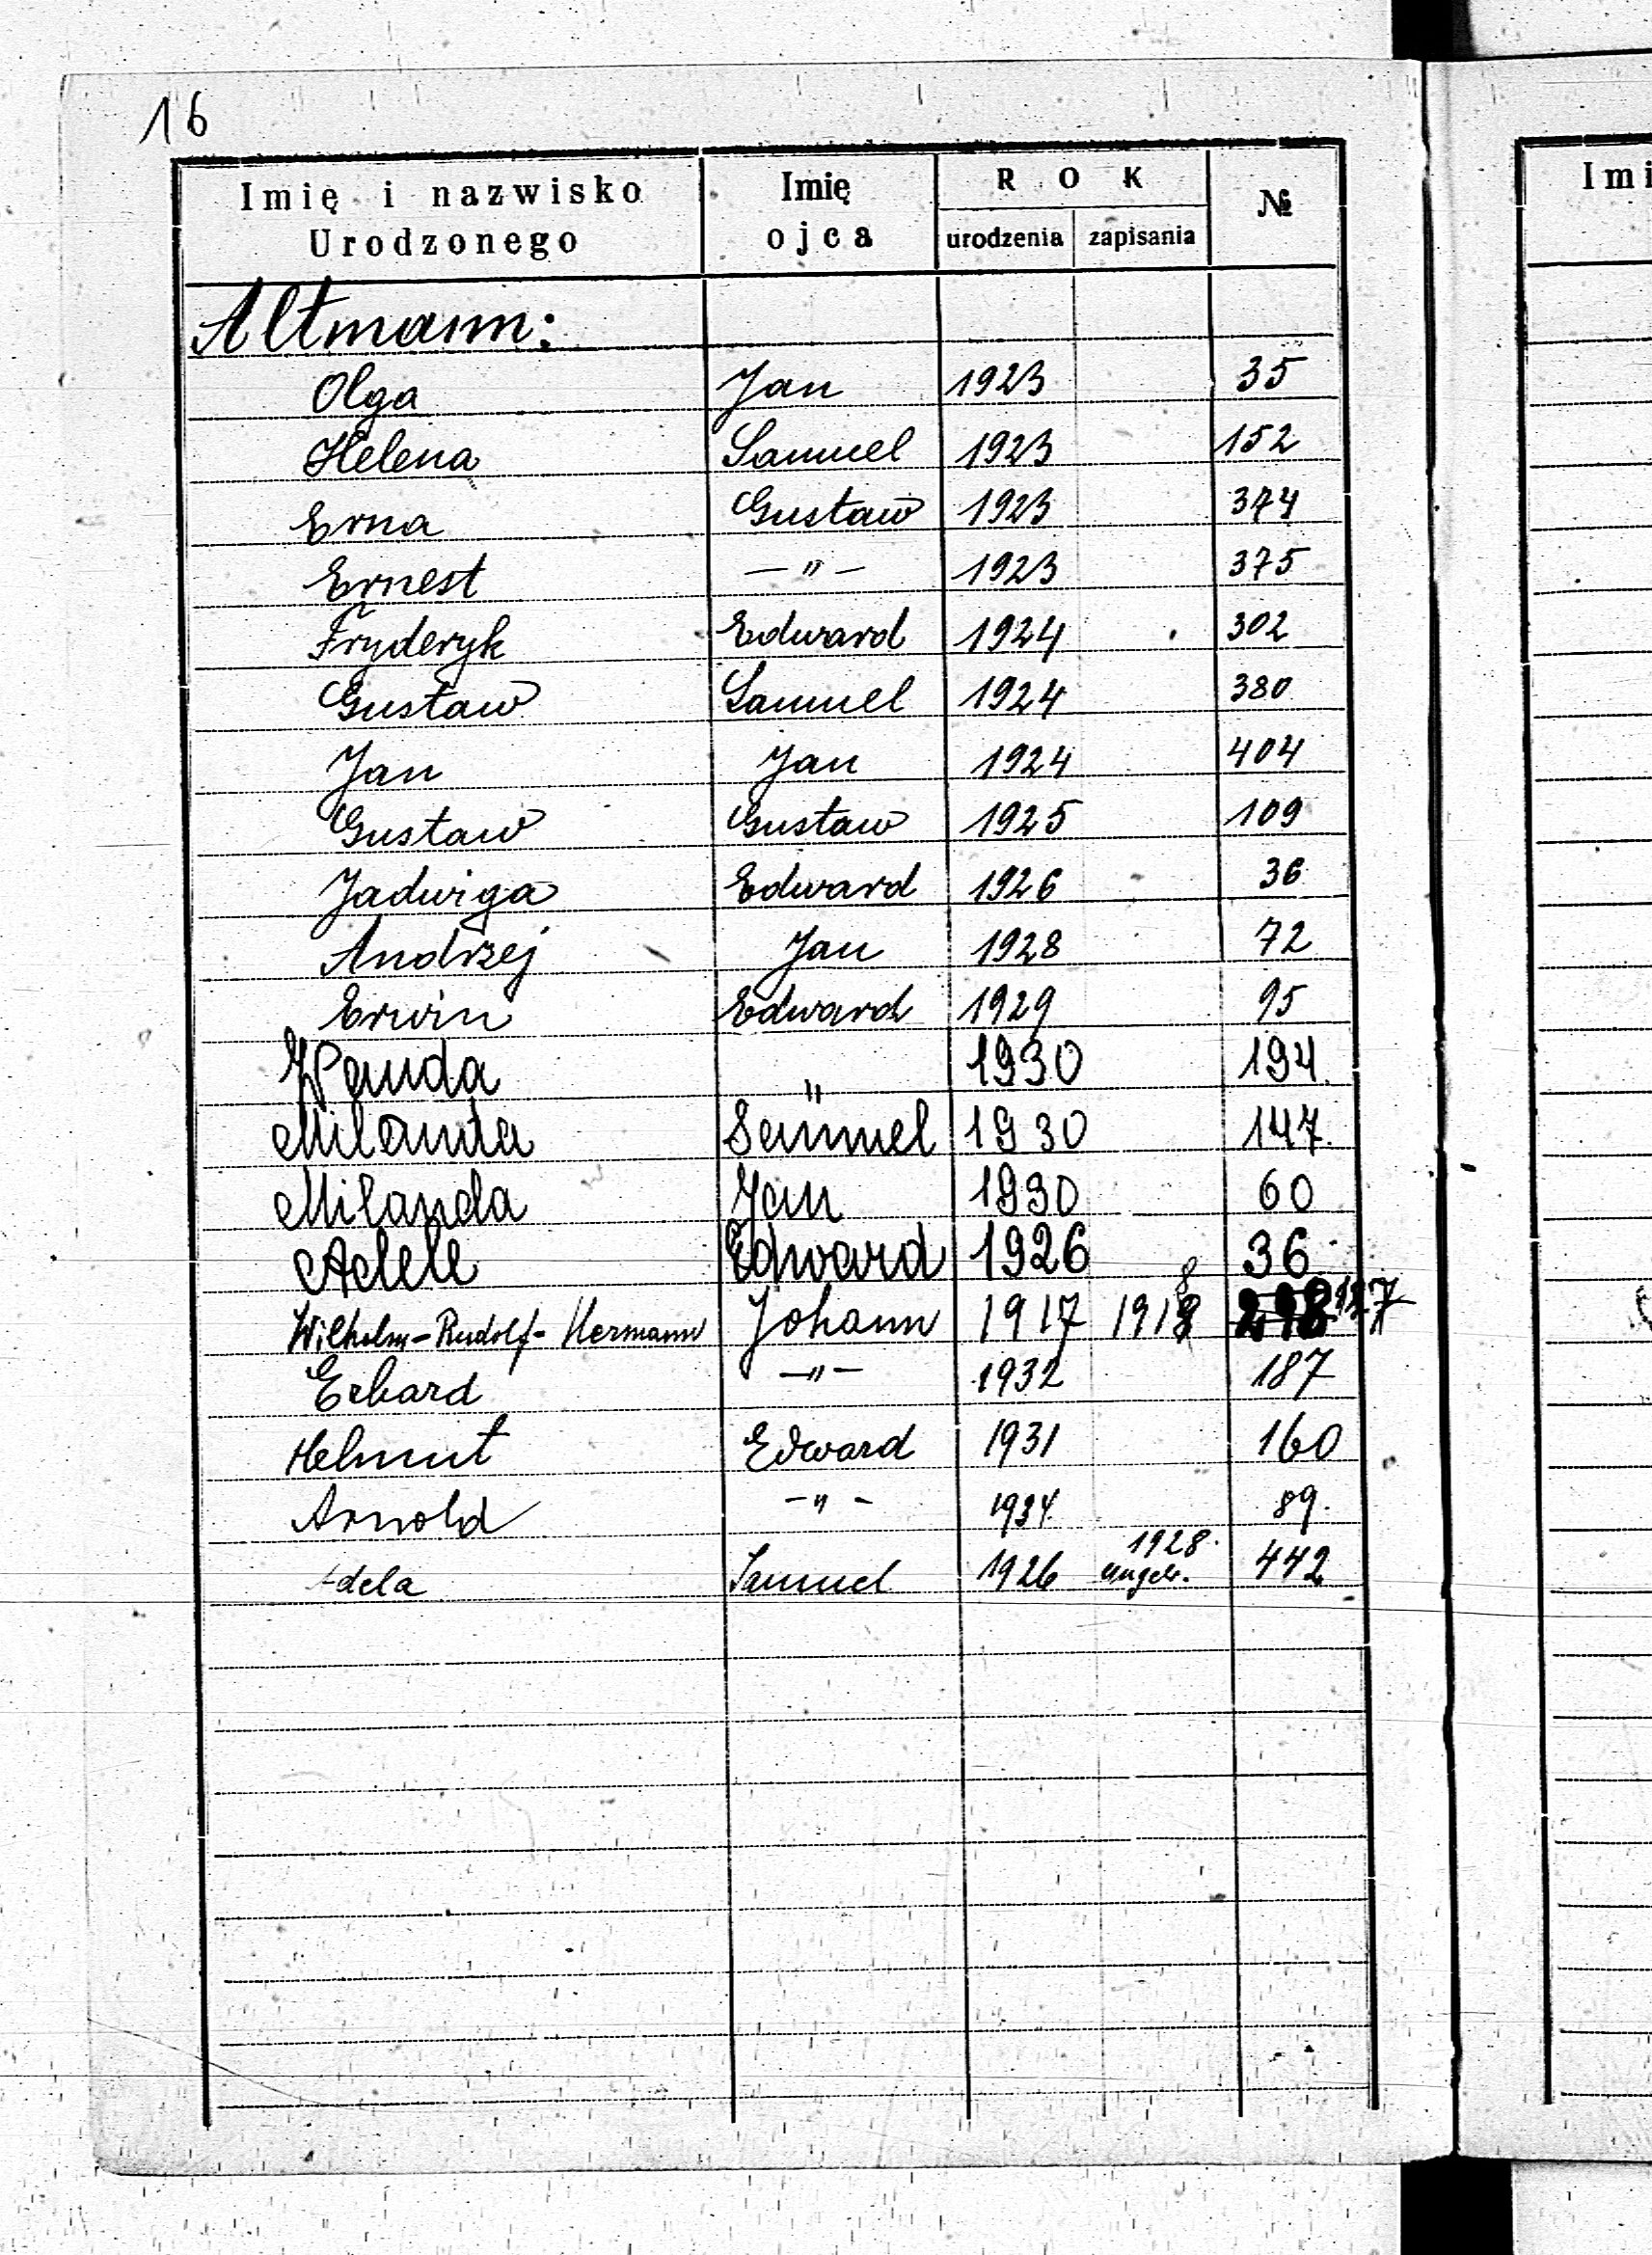 16
Imię i nazwisko Urodzonego | Imię ojca | ROK urodzenia | zapisania | №
Altmann:
Olga Jan 1923 35
Helena Samuel 1923 152
Erna Gustaw 1923 374
Ernest —〃— 1923 375
Fryderyk Edward 1924 302
Gustaw Samuel 1924 380
Jan Jan 1924 404
Gustaw Gustaw 1925 109
Jadwiga Edward 1926 36
Andrzej Jan 1928 72
Erwin Edward 1929 95
Wanda 〃 1930 194
Milanda Samuel 1930 147.
Milanda Jan 1930 60
Adele Edward 1926 36
Wilhelm-Rudolf-Hermann Johann 1917 1918 127
Erhard —〃— 1932 187
Helmut Edward 1931 160
Arnold —〃— 1934. 89.
Adela Samuel 1926 1928. 442
Imi